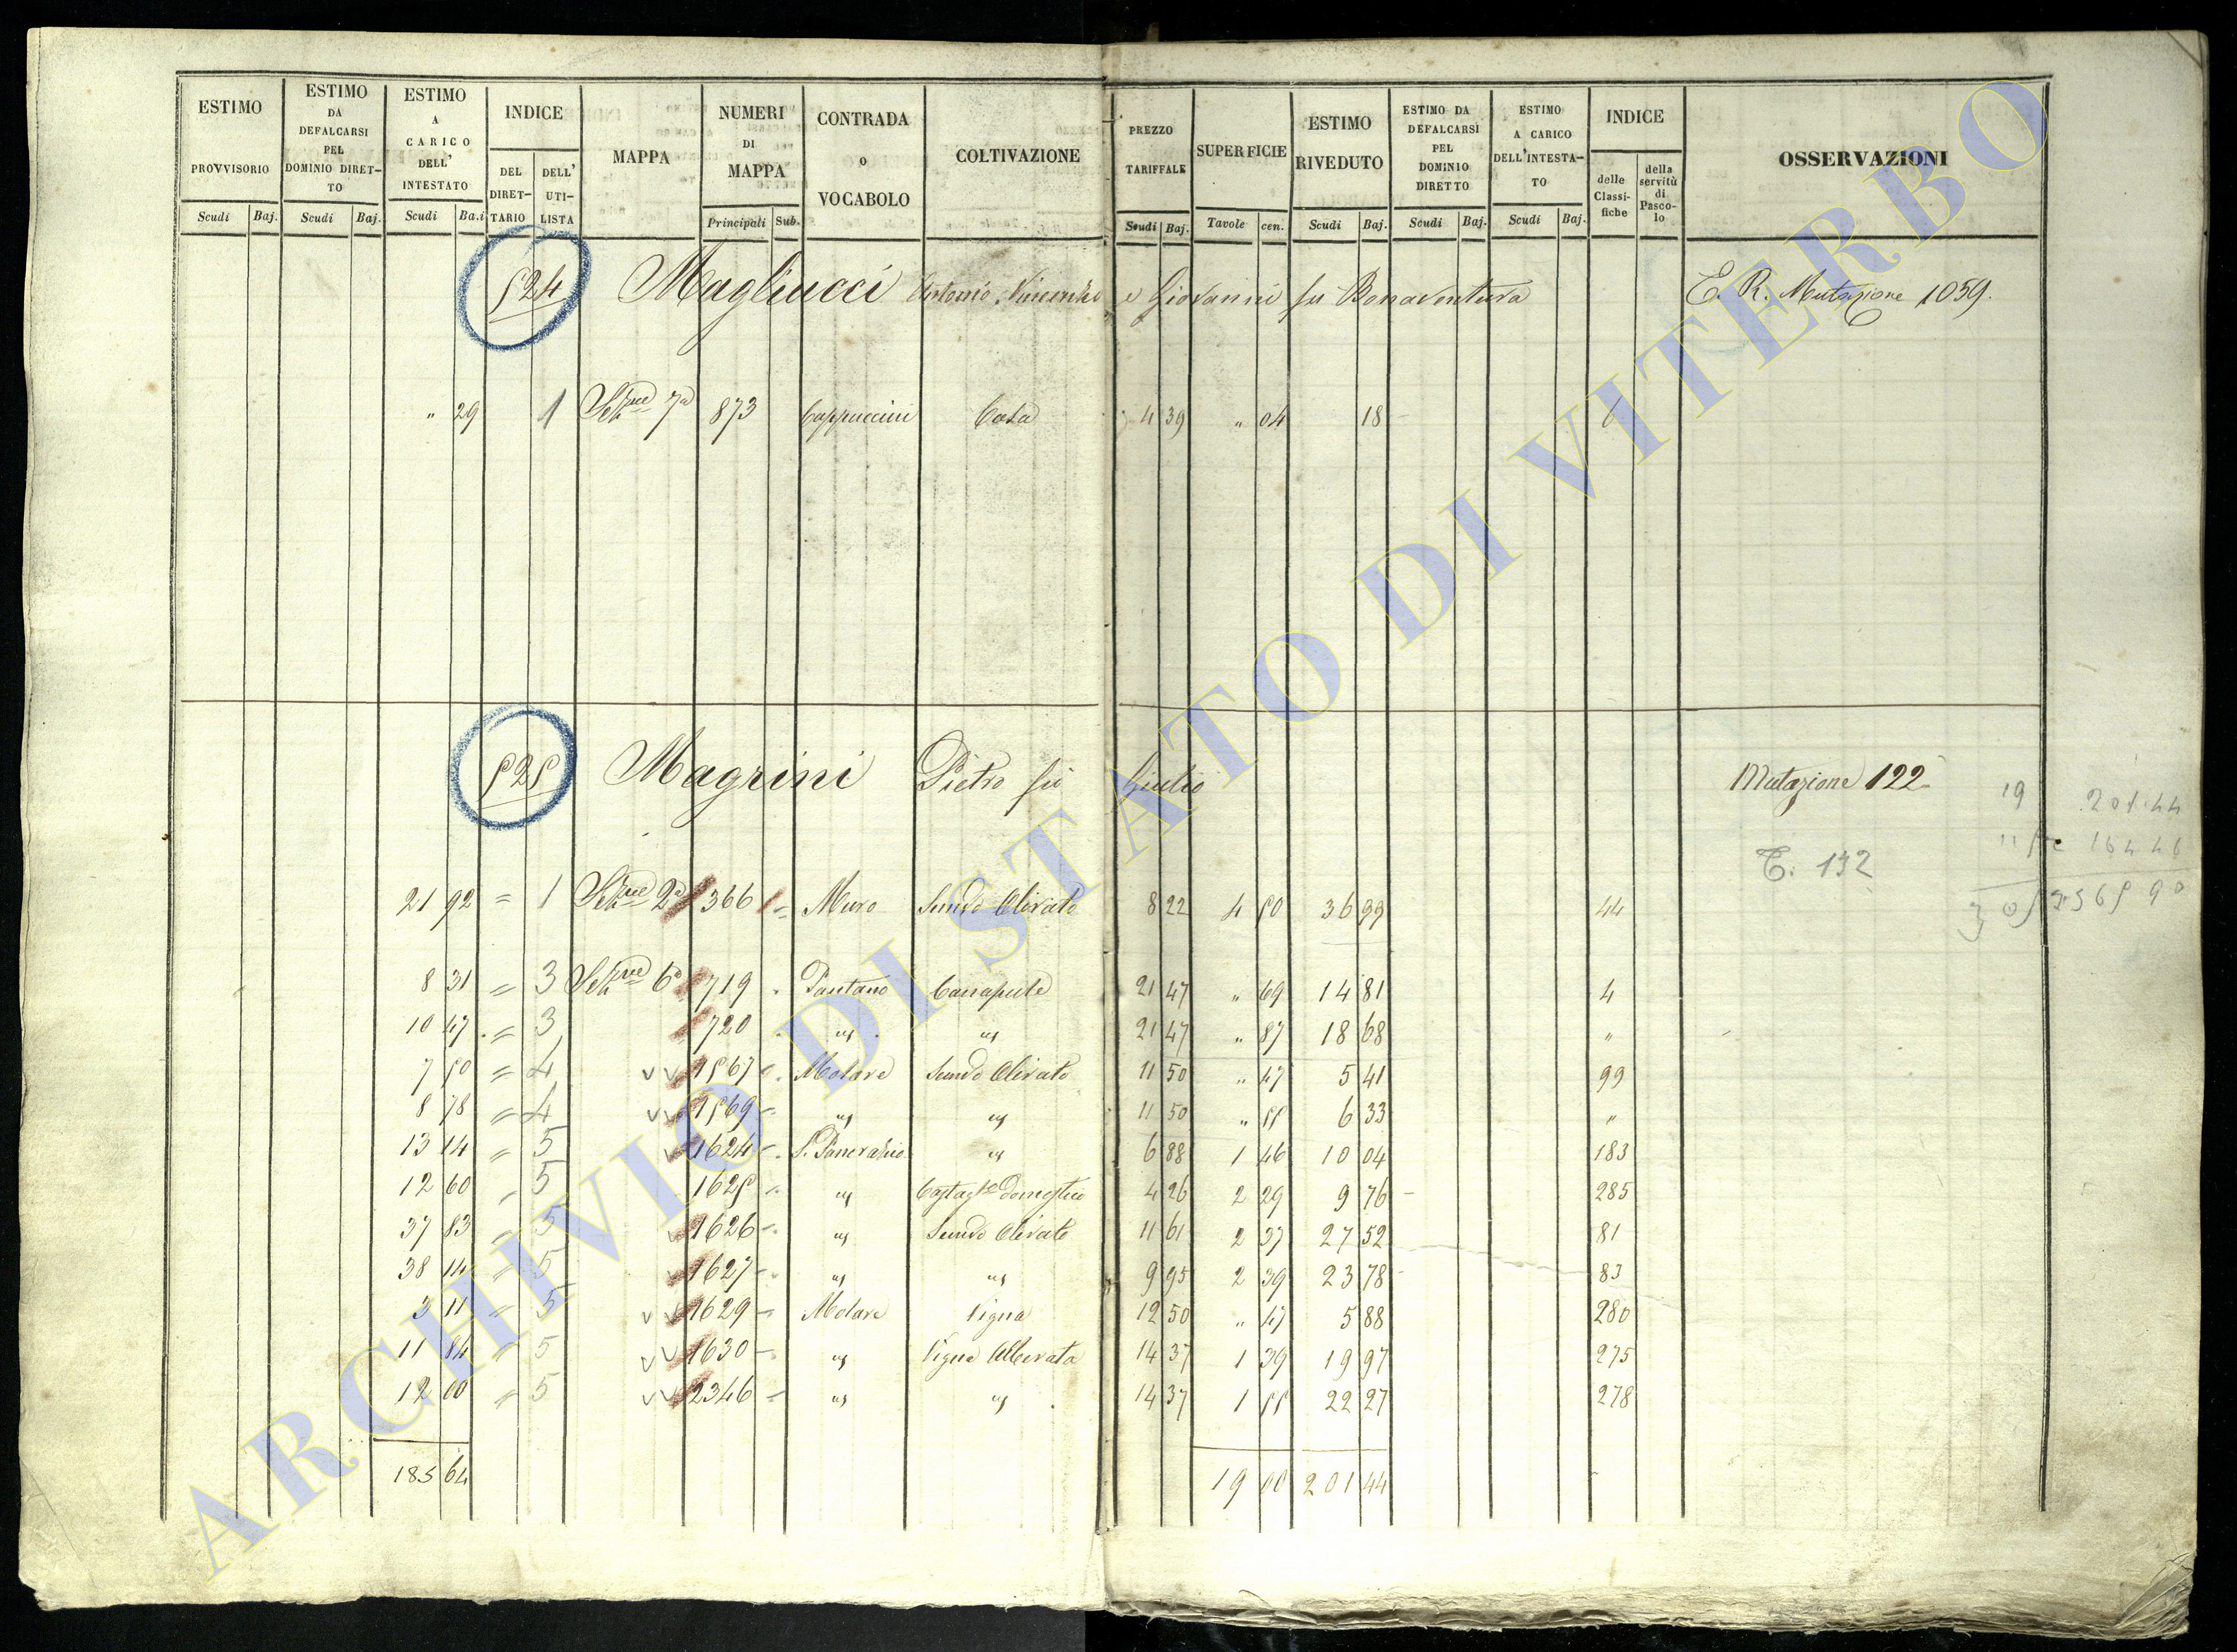 ESTIMO PROVVISORIO Scudi Baj.
ESTIMO DA DEFALCARSI PEL DOMINIO DIRETTO Scudi Baj.
ESTIMO A CARICO DELL' INTESTATO Scudi Ba.i
INDICE DEL DIRETTARIO DELL' UTILISTA
MAPPA
NUMERI DI MAPPA Principali Sub.
CONTRADA O VOCABOLO
COLTIVAZIONE
PREZZO TARIFFALE Scudi Baj.
SUPERFICIE Tavole cen.
ESTIMO RIVEDUTO Scudi Baj.
ESTIMO DA DEFALCARSI PEL DOMINIO DIRETTO Scudi Baj.
ESTIMO A CARICO DELL'INTESTATO Scudi Baj.
INDICE delle Classifiche della servitù di Pascolo
OSSERVAZIONI
524 Magliucci Antonio, Vincenzo e Giovanni fu Bonaventura E. R. Mutazione 1059.
" 29 1 Sez.ne 7a 873 Cappuccini Casa 4 39 " 04 18
525 Magrini Pietro fu Giulio Mutazione 122
19 201.44
T. 132
21 92 = 1 Sez.ne 2a 366 1 = Muro Semvo Olivato 8 22 4 50 36 99 44
8 31 = 3 Sez.ne 6a 719 Pantano Canapule 21 47 " 69 14 81 4
10 47 = 3 720 us us 21 47 " 87 18 68 "
7 50 = 4 1567 Molare Semvo Olivato 11 50 " 47 5 41 99
8 78 = 4 1569 us us 11 50 " 55 6 33 "
13 14 = 5 1624 S. Pancrazio us 6 88 1 46 10 04 183
12 60 = 5 1625 us Castag.to domestico 4 26 2 29 9 76 285
37 83 = 5 1626 us Semvo Olivato 11 61 2 37 27 52 81
38 14 = 5 1627 us us 9 95 2 39 23 78 83
3 11 = 5 1629 Molare Vigna 12 50 " 47 5 88 280
11 84 = 5 1630 us Vigna Alberata 14 37 1 39 19 97 275
12 00 = 5 2346 us us 14 37 1 55 22 27 278
185 64 19 00 201 44
ARCHIVIO DI STATO DI VITERBO